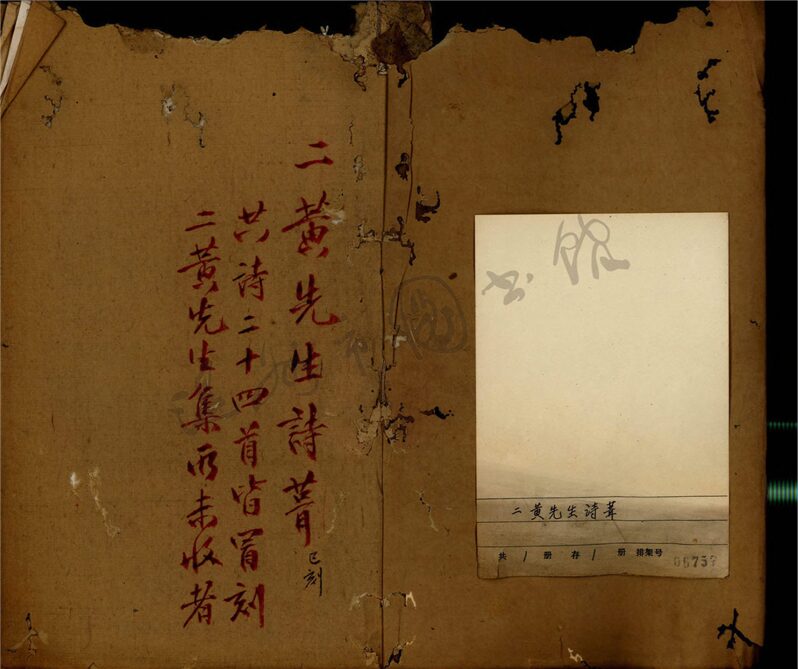 二黄先生詩葺
共 / 册 存 / 册 排架号
二黄先生詩葺 已刻
共詩二十四首皆冒刻
二黄先生集所未收者
温州市图书馆